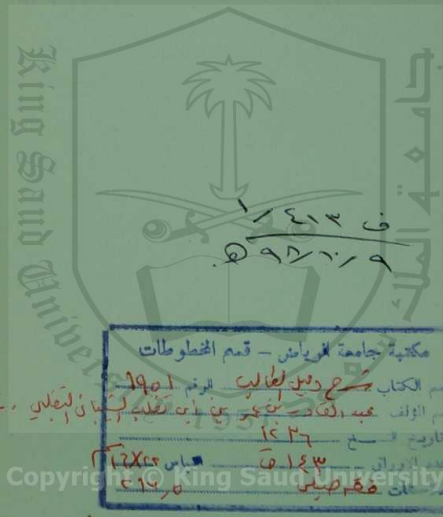 King Saud University
ف ٤١٣ / ١
٩ / ١٠ / ٩٦ هـ
مكتبة جامعة الرياض - قسم المخطوطات
اسم الكتاب شرح دليل الطالب الرقم ١٩٥١
اسم المؤلف عبد القادر بن عمر بن أبي تغلب الشيباني التغلبي
تاريخ النسخ ١٢٣٦
عدد الأوراق ١٤٣ ق
1957
Copyright © King Saud University